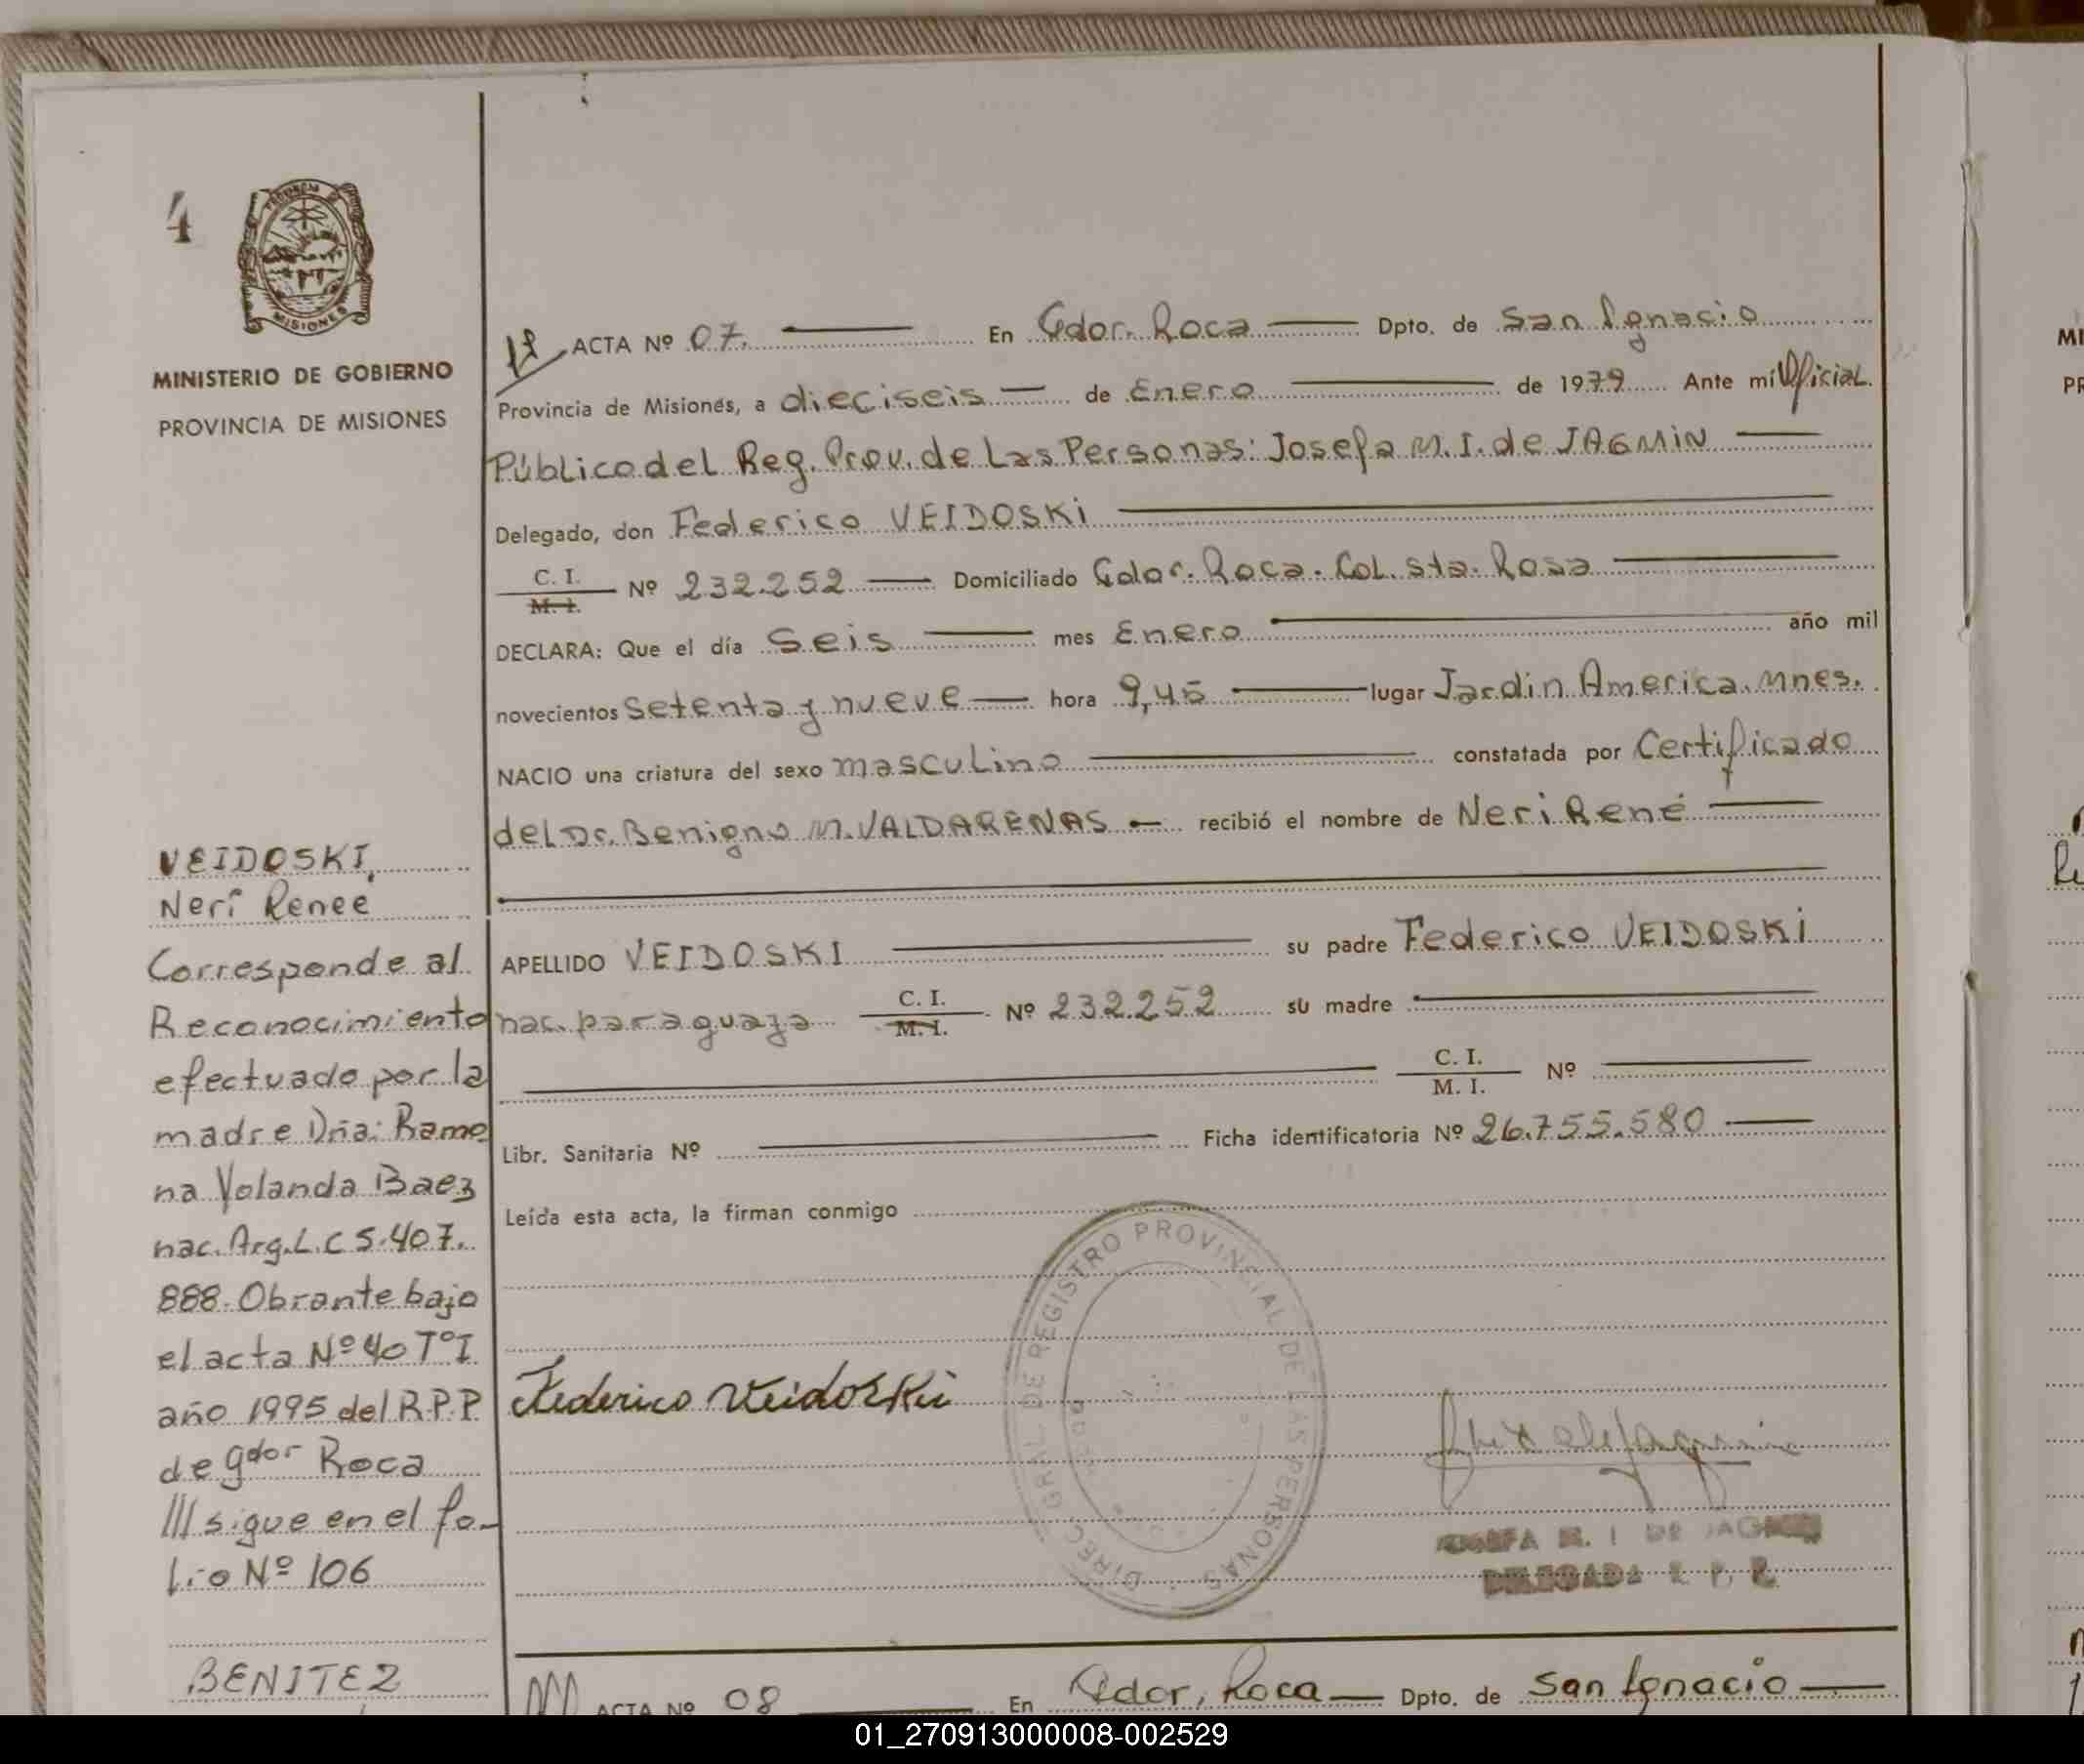 4
PROVINCIA
MISIONES
MINISTERIO DE GOBIERNO
PROVINCIA DE MISIONES
ACTA Nº 07. En Gdor. Roca Dpto. de San Ignacio
Provincia de Misiones, a dieciseis de Enero de 1979 Ante mí Oficial
Público del Reg. Prov. de Las Personas: Josefa M. I. de JAGMIN
Delegado, don Federico VEIDOSKI
C. I.
M. I.
Nº 232.252 Domiciliado Gdor. Roca. Col. Sta. Rosa
DECLARA: Que el día Seis mes Enero año mil
novecientos setenta y nueve hora 9,45 lugar Jardin America. Mnes.
NACIO una criatura del sexo masculino constatada por Certificado
del Dr. Benigno M. VALDARENAS recibió el nombre de Neri René
APELLIDO VEIDOSKI su padre Federico VEIDOSKI
nac. paraguaya C. I. M. I. Nº 232.252 su madre
C. I.
M. I.
Nº
Libr. Sanitaria Nº Ficha identificatoria Nº 26.755.580
Leída esta acta, la firman conmigo
Federico Veidoski
DIREC. GRAL DE REGISTRO PROVINCIAL DE LAS PERSONAS
JOSEFA M. I DE JAGMIN
DELEGADA R. P. P.
VEIDOSKI,
Neri Renee
Corresponde al
Reconocimiento
efectuado por la
madre Dña: Ramo
na Yolanda Baez
nac. Arg. L.C 5.407.
888. Obrante bajo
el acta Nº 40 TºI
año 1995 del R.P.P
de Gdor Roca
/// sigue en el fo-
lio Nº 106
BENITEZ
ACTA Nº 08 En Gdor. Roca Dpto. de San Ignacio
01_270913000008-002529